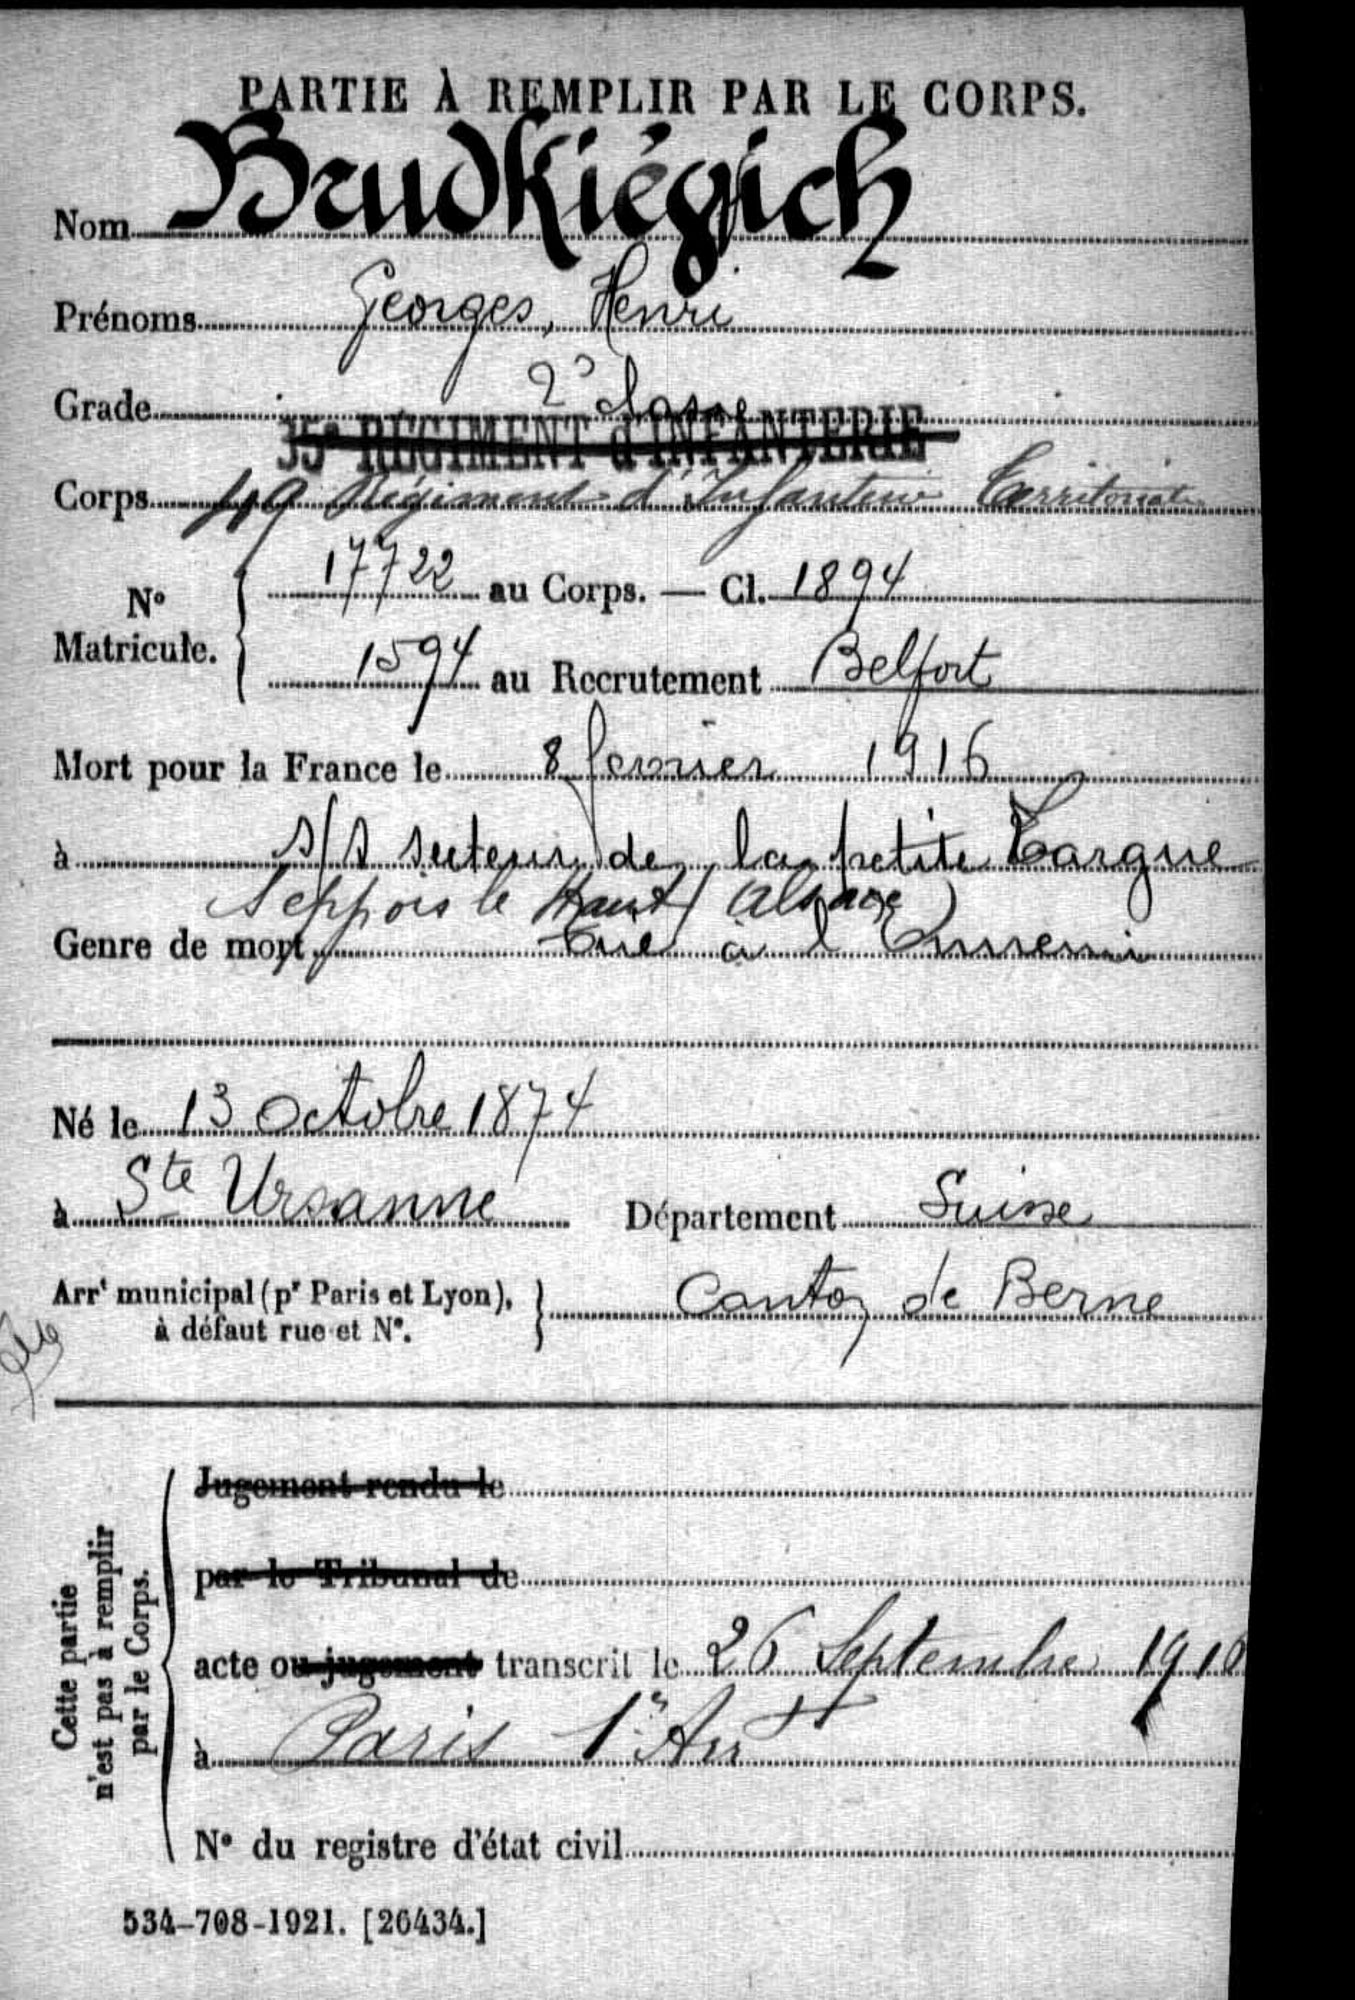 PARTIE À REMPLIR PAR LE CORPS.
Nom Brudkiégich
Prénoms Georges, Henri
Grade 2e classe
35e RÉGIMENT d'INFANTERIE
Corps 49 Régiment d'Infanterie Territoriale
N° Matricule. 17722 au Corps. — Cl. 1894
1594 au Recrutement Belfort
Mort pour la France le 8 fevrier 1916
à s/s secteur de la petite Largue
Seppois le Haut (Alsace)
Genre de mort Tué à l'Ennemi
Né le 13 Octobre 1874
à Ste Ursanne Département Suisse
Arrt municipal (pr Paris et Lyon), à défaut rue et N°. Canton de Berne
Cette partie n'est pas à remplir par le Corps.
Jugement rendu le
par le Tribunal de
acte ou jugement transcrit le 26 Septembre 1916
à Paris 1er Arrt
N° du registre d'état civil
534-708-1921. [26434.]